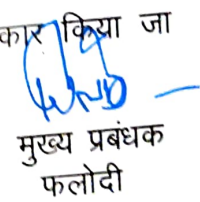 कार किया जा
मुख्य प्रबंधक
फलोदी